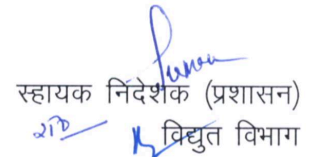 स्हायक निदेशक (प्रशासन)
विद्युत विभाग